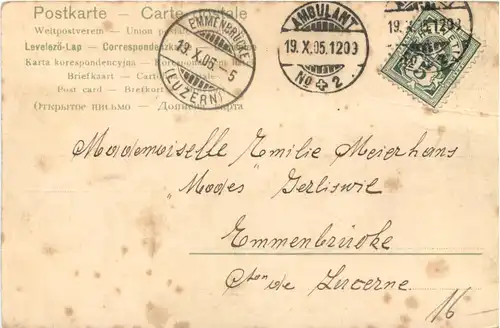 Postkarte - Carte postale
Weltpostverein - Union postale
Levelező-Lap - Correspondenzkarte
Karta korespondencyjna - Korespondenční
Briefkaart - Carto postale
Post card - Brefkort
Открытое письмо - карта
EMMENBRÜCKE
19.X.05 - 5
(LUZERN)
AMBULANT
19.X.05.1209
No 2
19.X.05.1209
No
HELVETIA
5
Mademoiselle Emilie Meierhans
"Modes" Gerliswil
Emmenbrücke
Cton de Lucerne
16